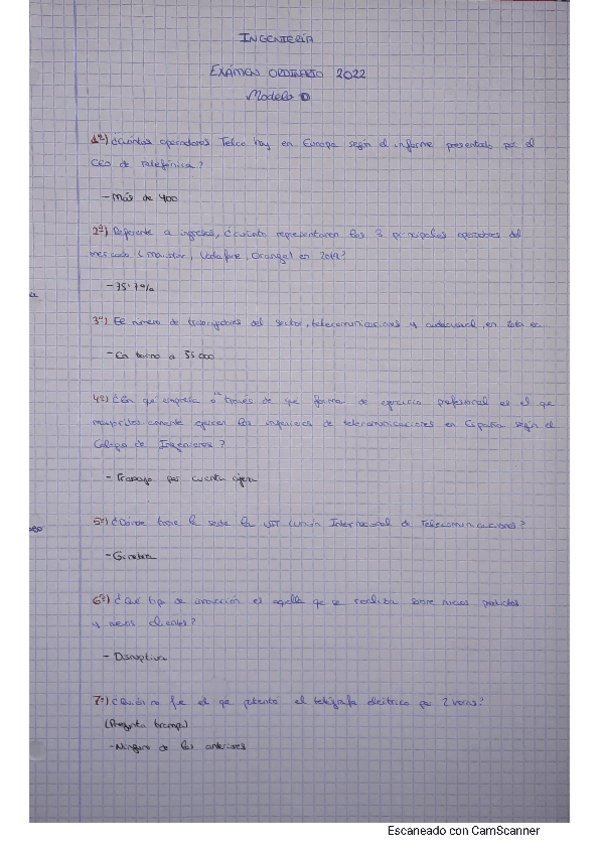 INGENIERÍA
EXÁMEN ORDINARIO 2022
Modelo D
1º) ¿Cuántos operadores Telco hay en Europa según el informe presentado por el
CEO de Telefónica?
- Más de 400
2º) Referente a ingresos, ¿cuánto representaron los 3 principales operadores del
mercado (Movistar, Vodafone, Orange) en 2019?
- 75'7%
3º) El número de trabajadores del sector, telecomunicaciones y audiovisual, en es
- En torno a 55000
4º) ¿En qué empresa o través de que forma de ejercicio profesional es el que
mayoritariamente ejercen los ingenieros de telecomunicaciones en España según el
Colegio de Ingenieros?
- Trabajo por cuenta ajena
5º) ¿Dónde tiene la sede la UIT (Unión Internacional de Telecomunicaciones?
- Ginebra
6º) ¿Qué tipo de innovación es aquella que se realiza sobre nuevos productos
y nuevos clientes?
- Disruptiva
7º) ¿Quién no fue el que patentó el telégrafo eléctrico por 2 veces?
(Pregunta trampa)
- Ninguno de los anteriores
Escaneado con CamScanner